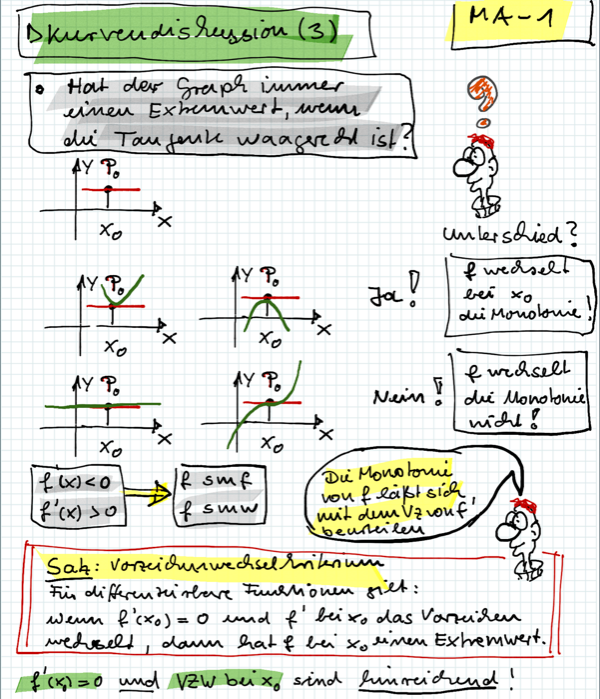 Dkurvendiskussion (3)
MA-1
• Hat der Graph immer
einen Extremwert, wenn
die Tangente waagerecht ist?
?
y P₀
x₀ x
Unterschied?
y P₀
x₀ x
y P₀
x₀ x
Ja!
f wechselt
bei x₀
die Monotonie!
y P₀
x₀ x
y P₀
x₀ x
Nein!
f wechselt
die Monotonie
nicht!
f'(x) < 0
f'(x) > 0
f smf
f smw
Die Monotonie
von f läßt sich
mit dem VZ von f'
beurteilen
Satz: Vorzeichenwechselkriterium
Für differenzierbare Funktionen gilt:
wenn f'(x₀) = 0 und f' bei x₀ das Vorzeichen
wechselt, dann hat f bei x₀ einen Extremwert.
f'(x₀) = 0 und VZW bei x₀ sind hinreichend!